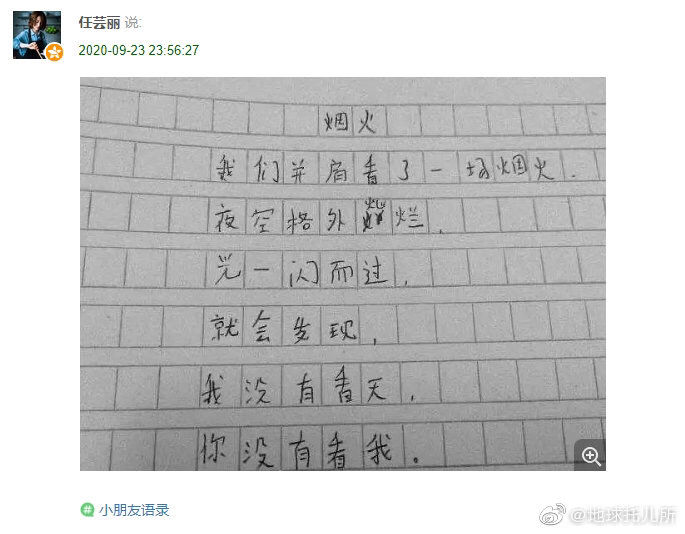 任芸丽 说:
2020-09-23 23:56:27
烟火
我们并肩看了一场烟火.
夜空格外灿烂,
光一闪而过,
就会发现,
我没有看天,
你没有看我。
小朋友语录
@地球托儿所